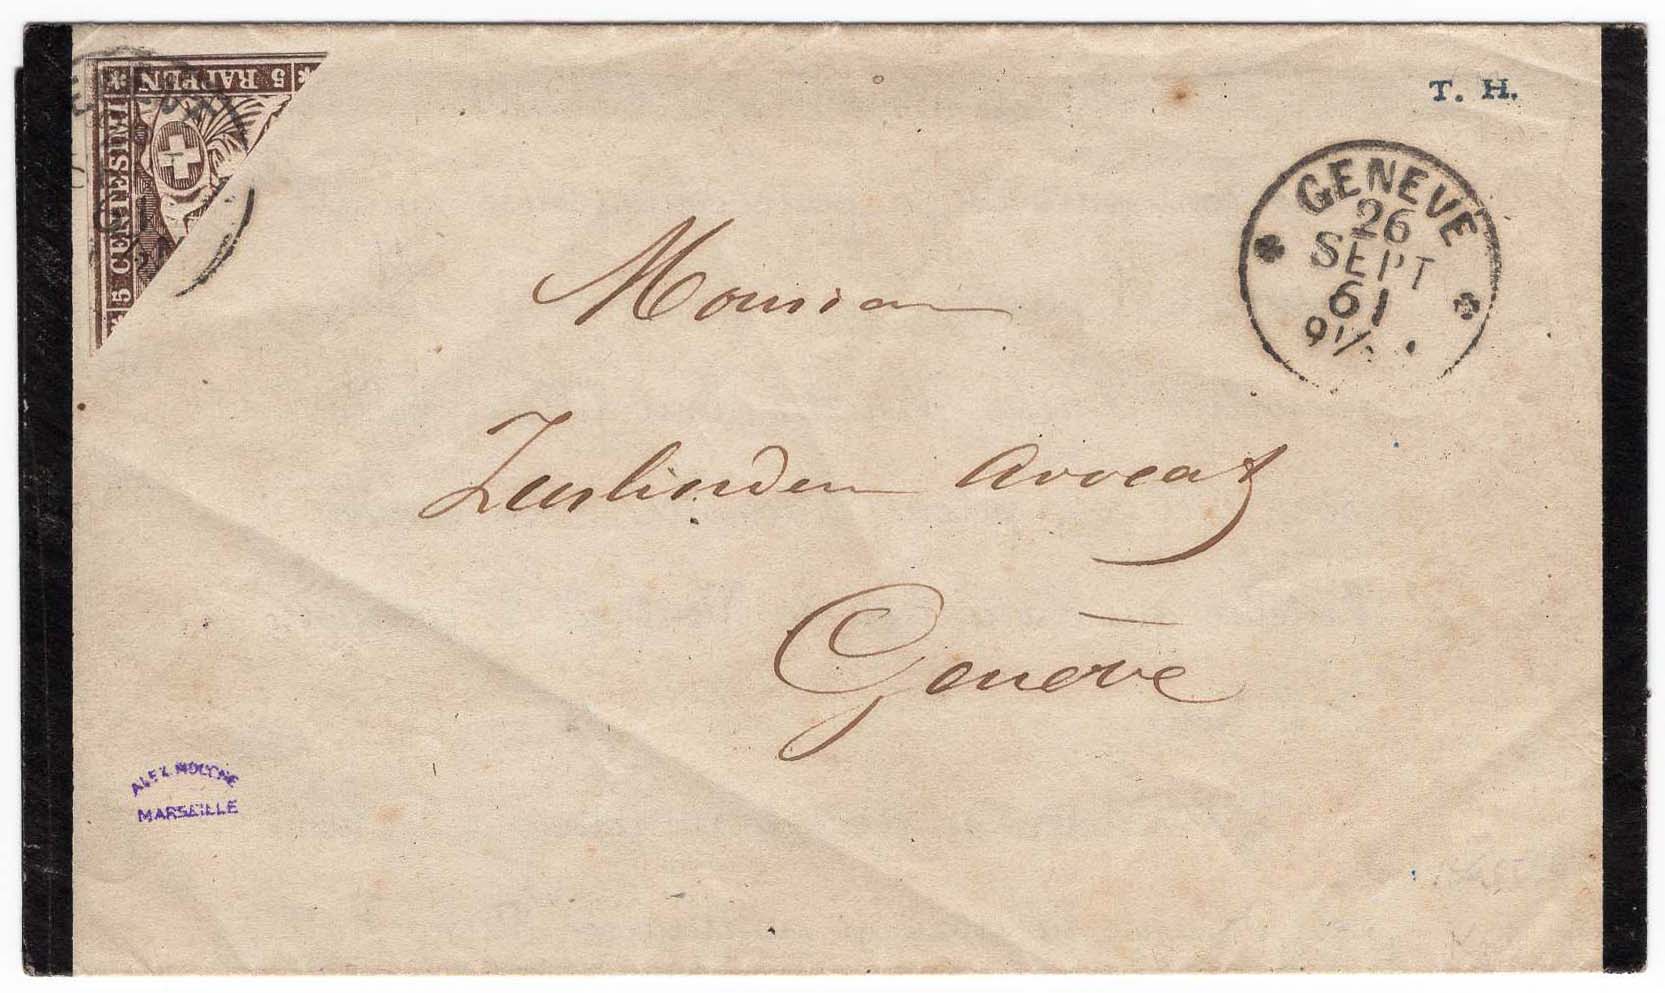 5 RAPPEN
5 CENTESIMI
T. H.
GENEVE
26
SEPT
61
9 1/2
Monsieur
Zurlinden Avocat
Genève
MARSEILLE